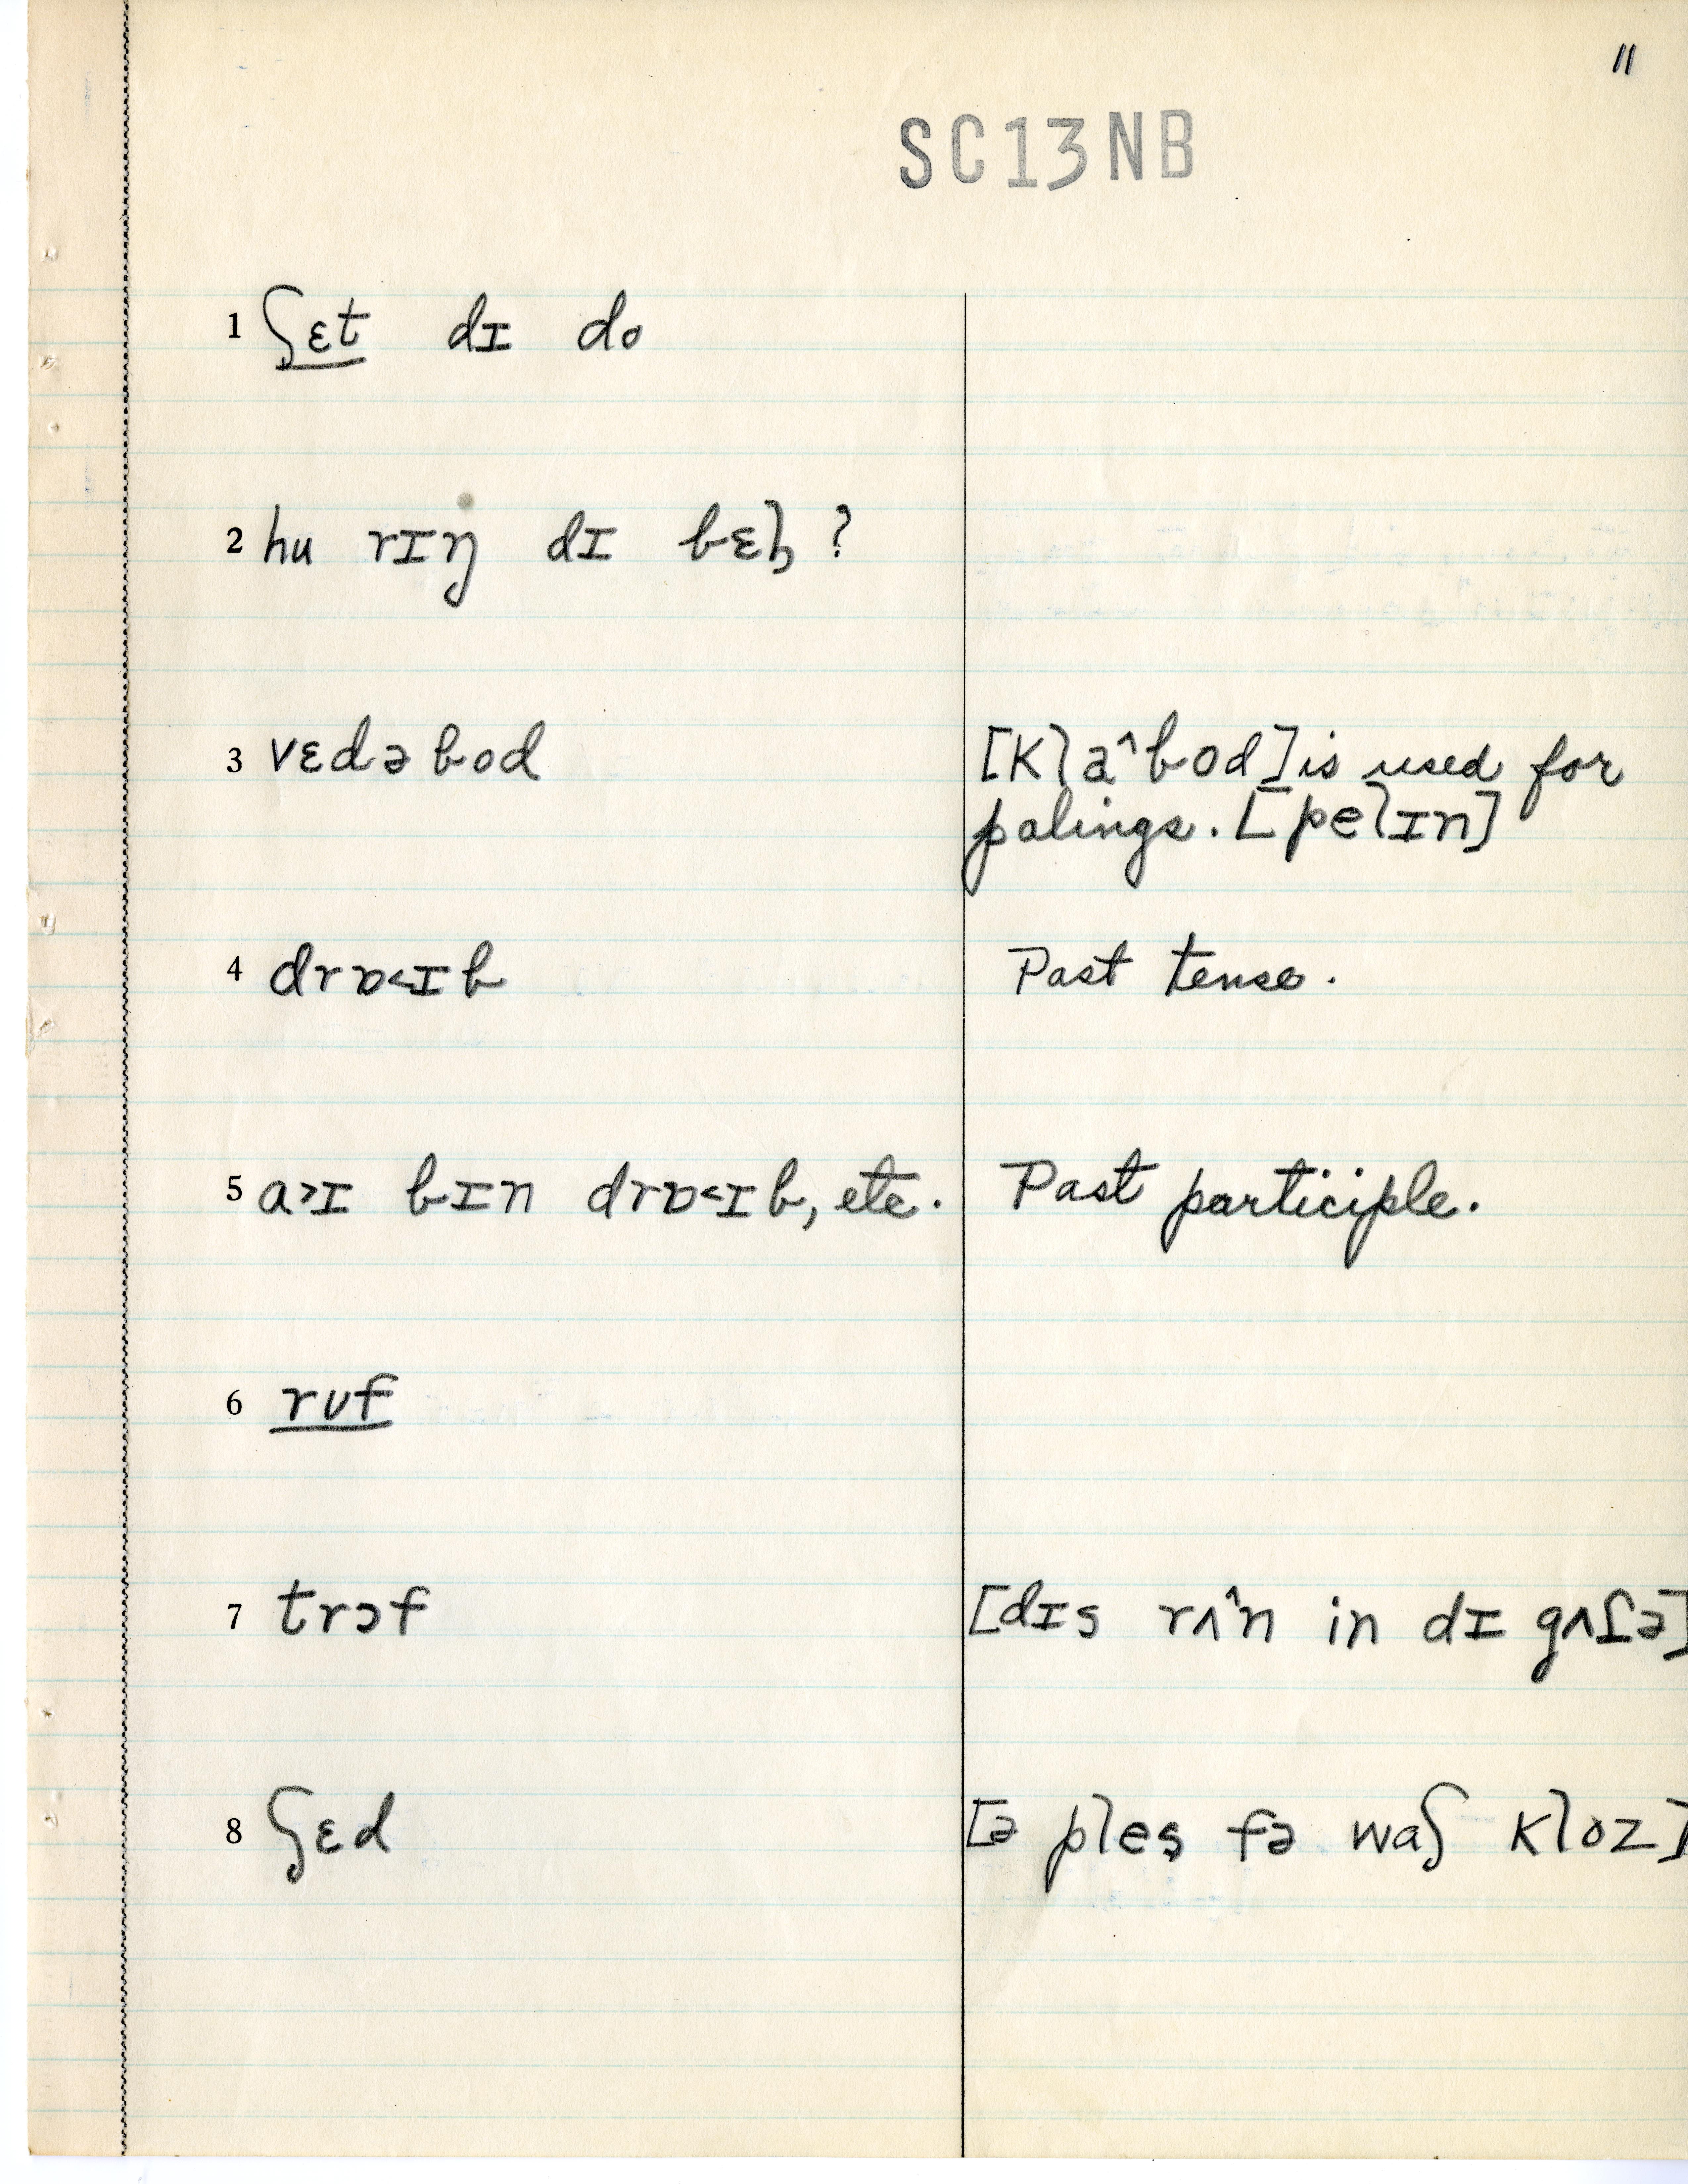 11
SC13NB
1 ʃɛt dɪ do
2 hu rɪŋ dɪ bɛɫ ?
3 vɛdə bod [klaˆbod] is used for
palings. [pelɪn]
4 drɒ˂ɪb Past tense.
5 a˃ɪ bɪn drɒ˂ɪb, etc. Past participle.
6 rʊf
7 trɔf [dɪs rʌˆn in dɪ gʌʃə]
8 ʃɛd [ə ples fə waʃ kloz]